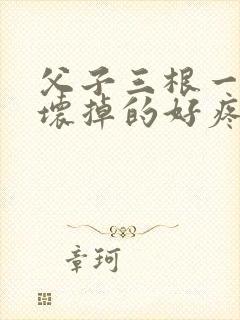 父子三根一
壞掉的好疼
章珂